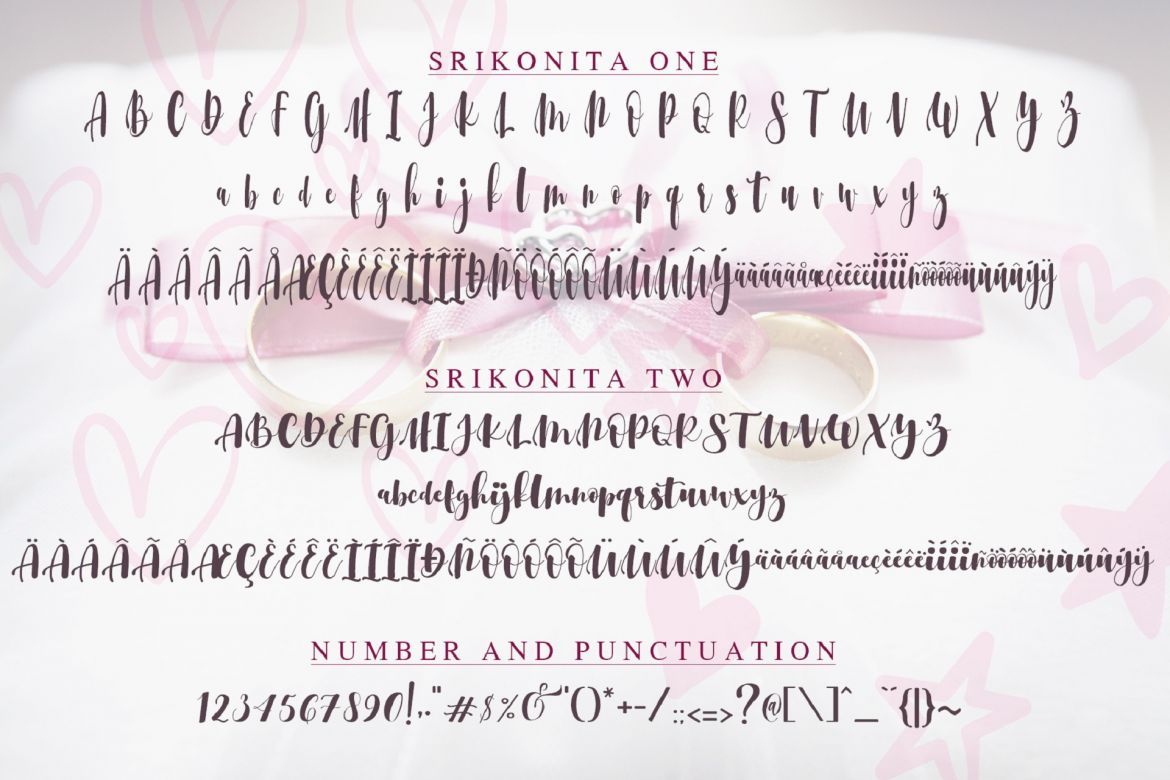 SRIKONITA ONE
A B C D E F G H I J K L M N O P Q R S T U V W X Y Z
a b c d e f g h i j k l m n o p q r s t u v w x y z
ÄÀÁÂÃÅÆÇÈÉÊËÌÍÎÏÐÑÖÒÓÔÕÜÙÚÛÝäàáâãåæçèéêëìíîïñöòóôõüùúûýÿ
SRIKONITA TWO
ABCDEFGHIJKLMNOPQRSTUVWXYZ
abcdefghijklmnopqrstuvwxyz
ÄÀÁÂÃÅÆÇÈÉÊËÌÍÎÏÐÑÖÒÓÔÕÜÙÚÛÝäàáâãåæçèéêëìíîïñöòóôõüùúûýÿ
NUMBER AND PUNCTUATION
1234567890!,."#$%&'()*+-/:;<=>?@[\]^_¨{|}~